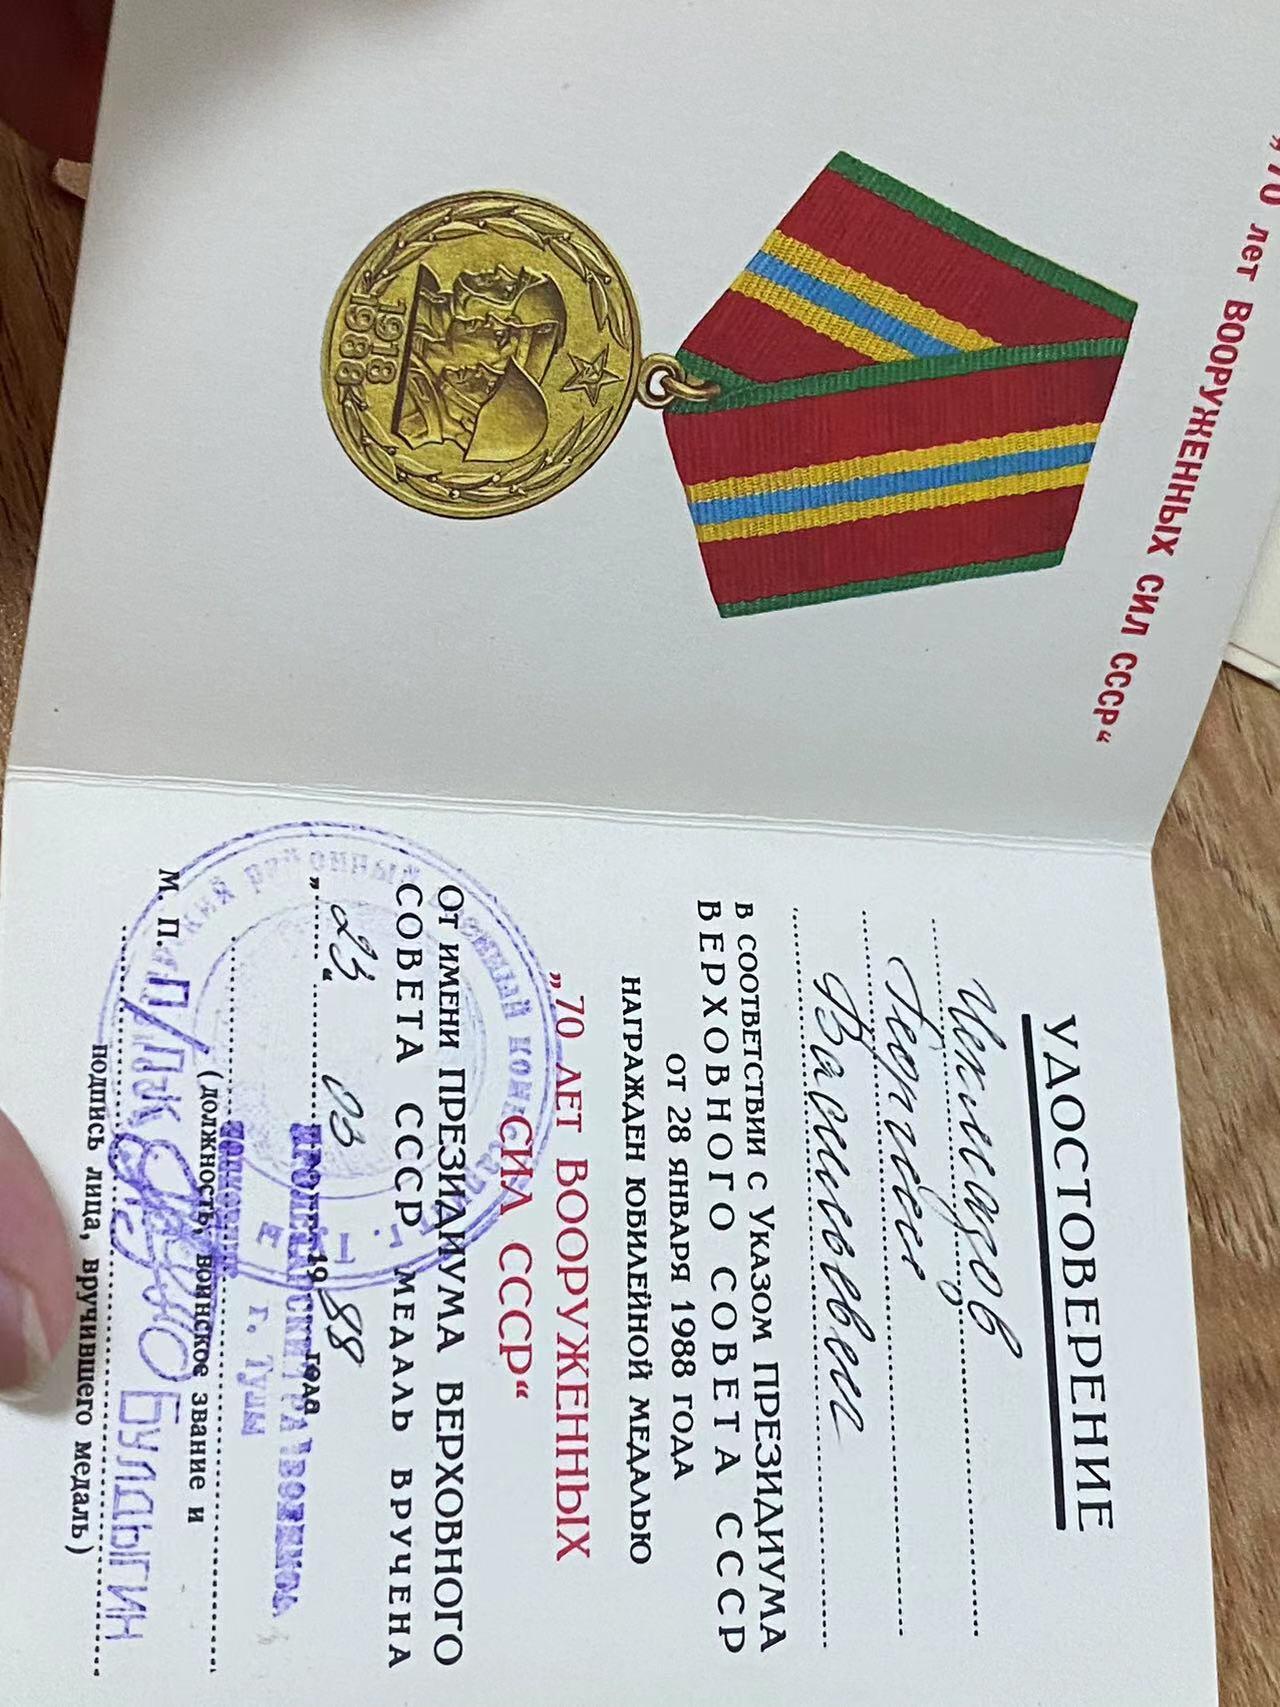 „70 лет ВООРУЖЕННЫХ СИЛ СССР“
1918
1988
УДОСТОВЕРЕНИЕ
Георгий
Васильевич
В СООТВЕТСТВИИ С УКАЗОМ ПРЕЗИДИУМА
ВЕРХОВНОГО СОВЕТА СССР
ОТ 28 ЯНВАРЯ 1988 ГОДА
НАГРАЖДЕН ЮБИЛЕЙНОЙ МЕДАЛЬЮ
„70 ЛЕТ ВООРУЖЕННЫХ
СИЛ СССР“
ОТ ИМЕНИ ПРЕЗИДИУМА ВЕРХОВНОГО
СОВЕТА СССР МЕДАЛЬ ВРУЧЕНА
„23“ 03 1988 года
г. Тулы
(должность, воинское звание и
М. П.
П/ПК БУЛДЫГИН
подпись лица, вручившего медаль)
районный военный